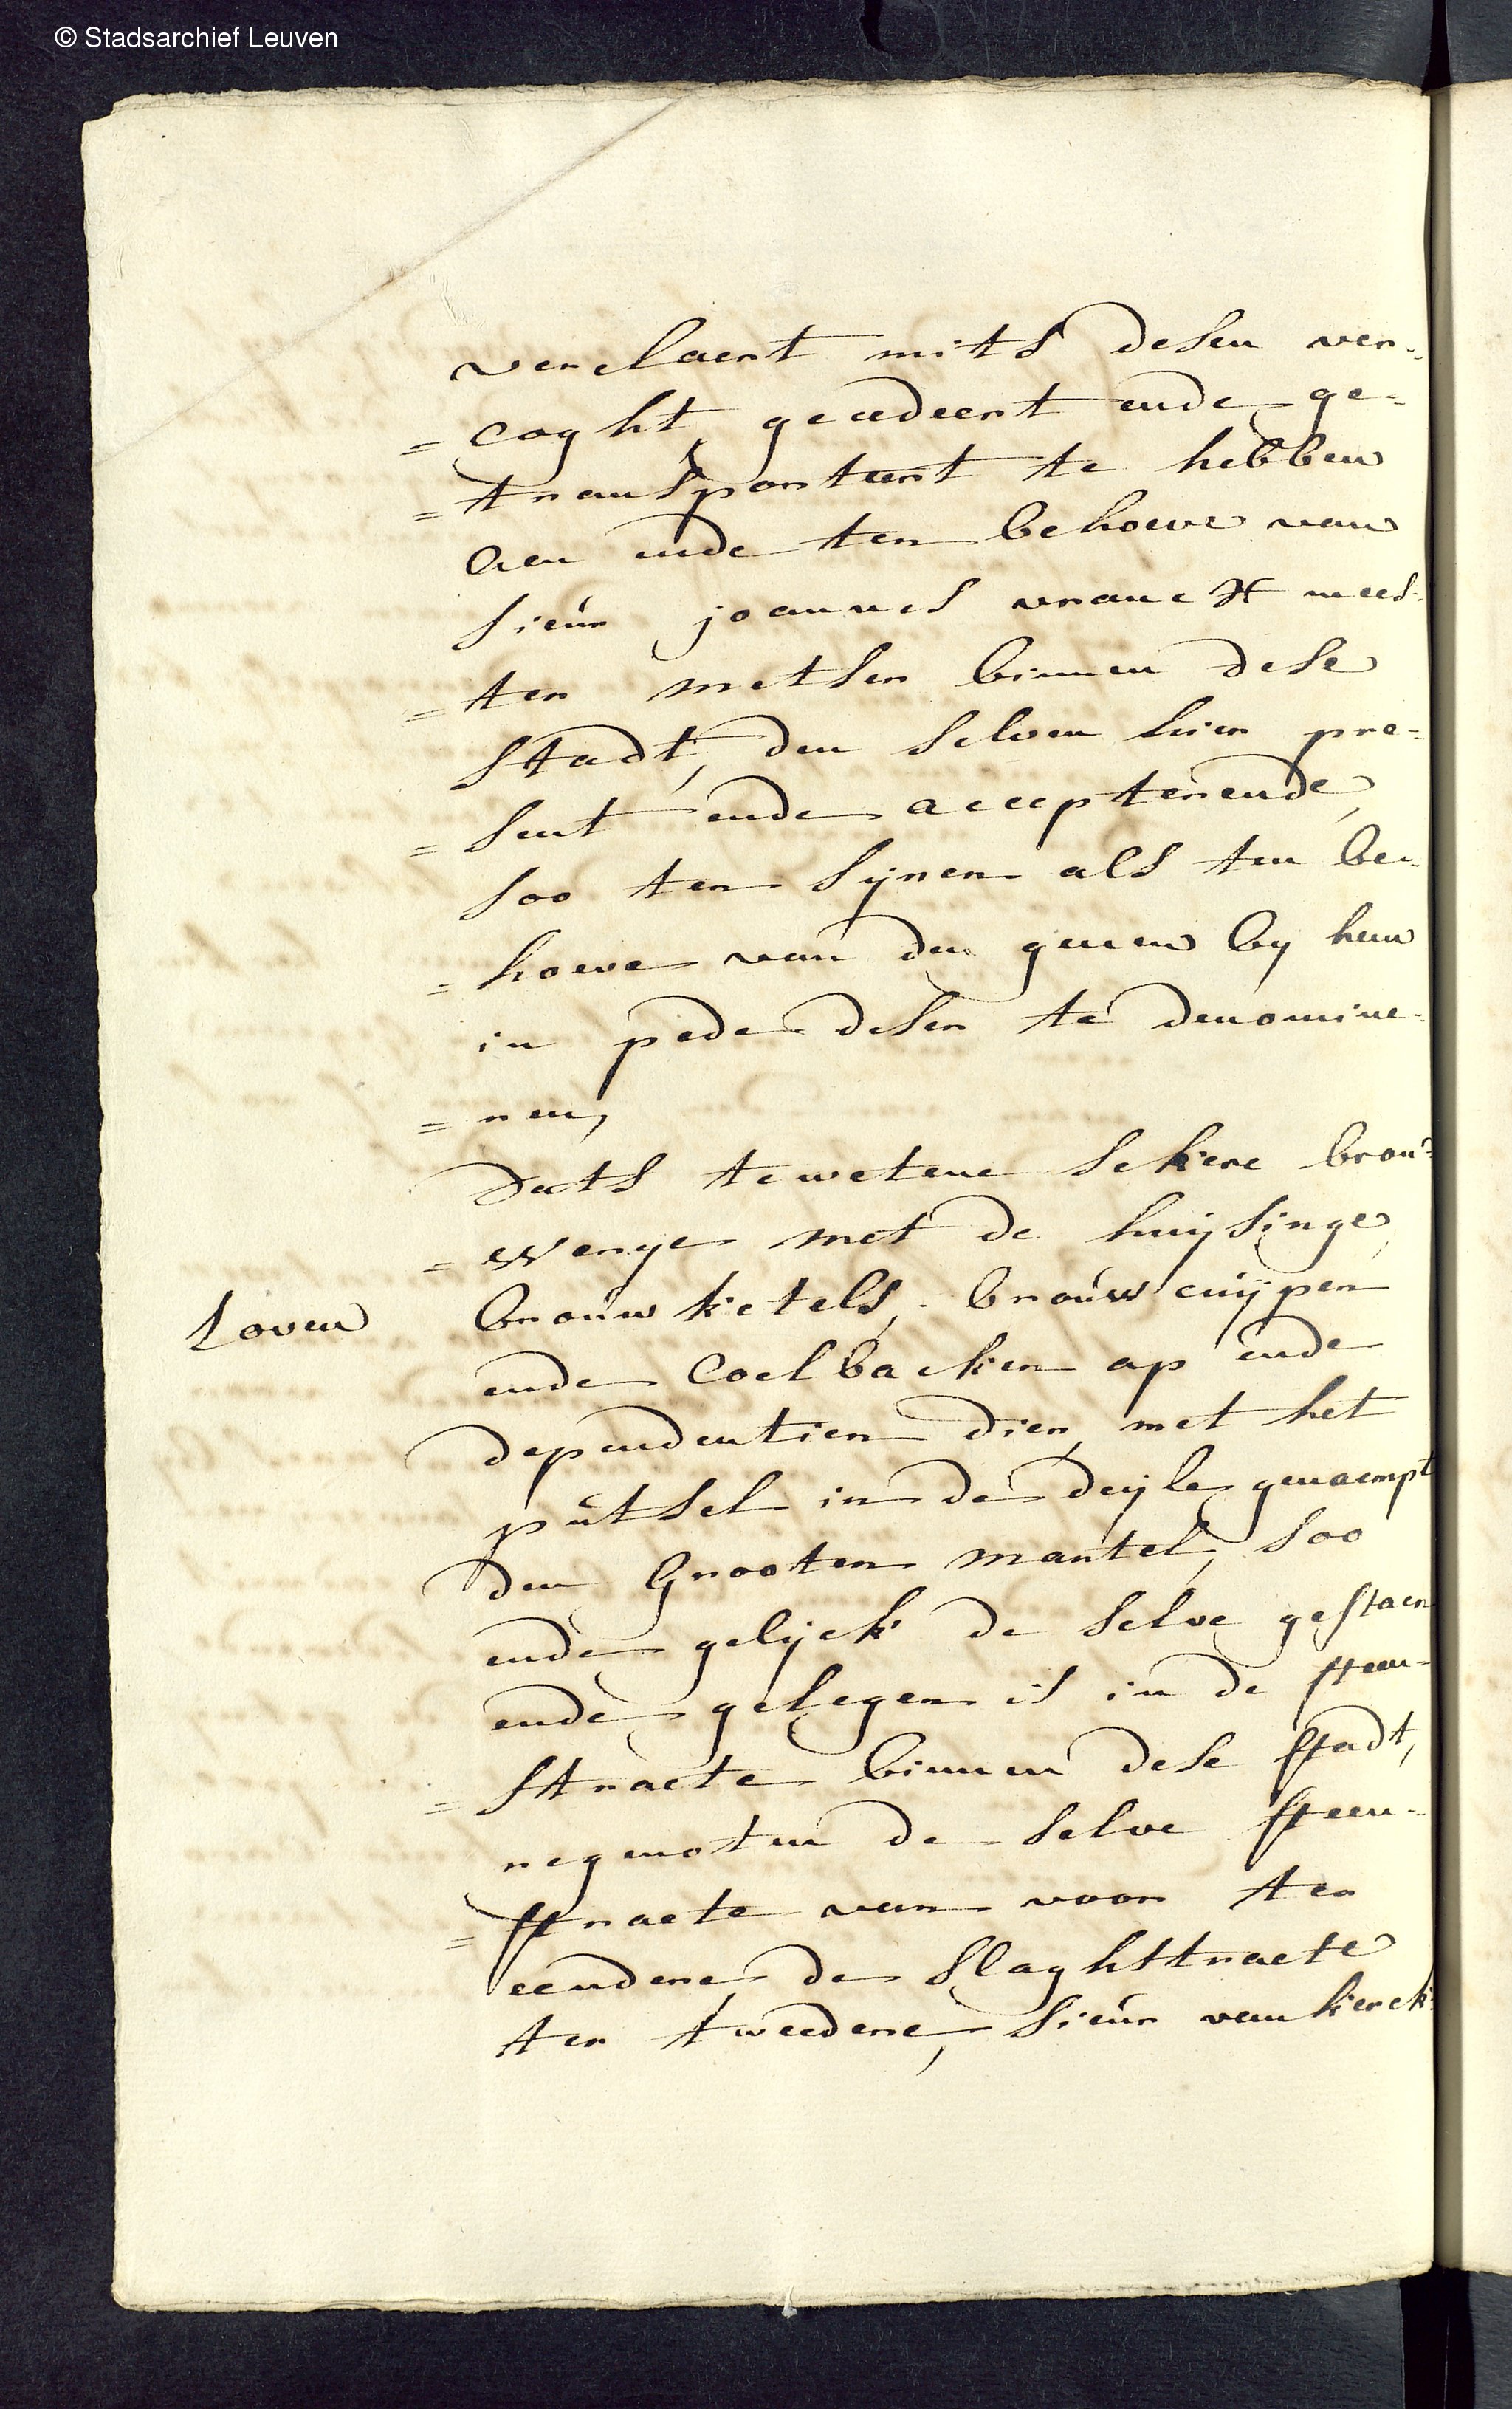 © Stadsarchief Leuven
verclaert mits desen ver-
=coght, gecedeert ende ge-
=transporteert te hebben
aen ende ten behoeve van
sieur joannes vranckx mees-
=ter metser binnen dese
stadt, den selven hier pre-
=sent ende accepterende,
soo ten sijnen als ten be-
=hoeve van den genen by hem
in pede deser te denomine-
=ren,
Dats te wetene sekere brou-
=werye met de huijsinge,
Loven
brouwketels, brouwcuijpen
ende Coelbacken ap ende
dependentien dien, met het
putsel in de deijle genaempt
den Grooten mantel, soo
ende gelijck de selve gestaen
ende gelegen is in de steen-
=straete binnen dese stadt,
regenoten de selve steen-
=straete van voor ter
eendere, de Slaghstraete
ter tweedere, sieur van kerck-